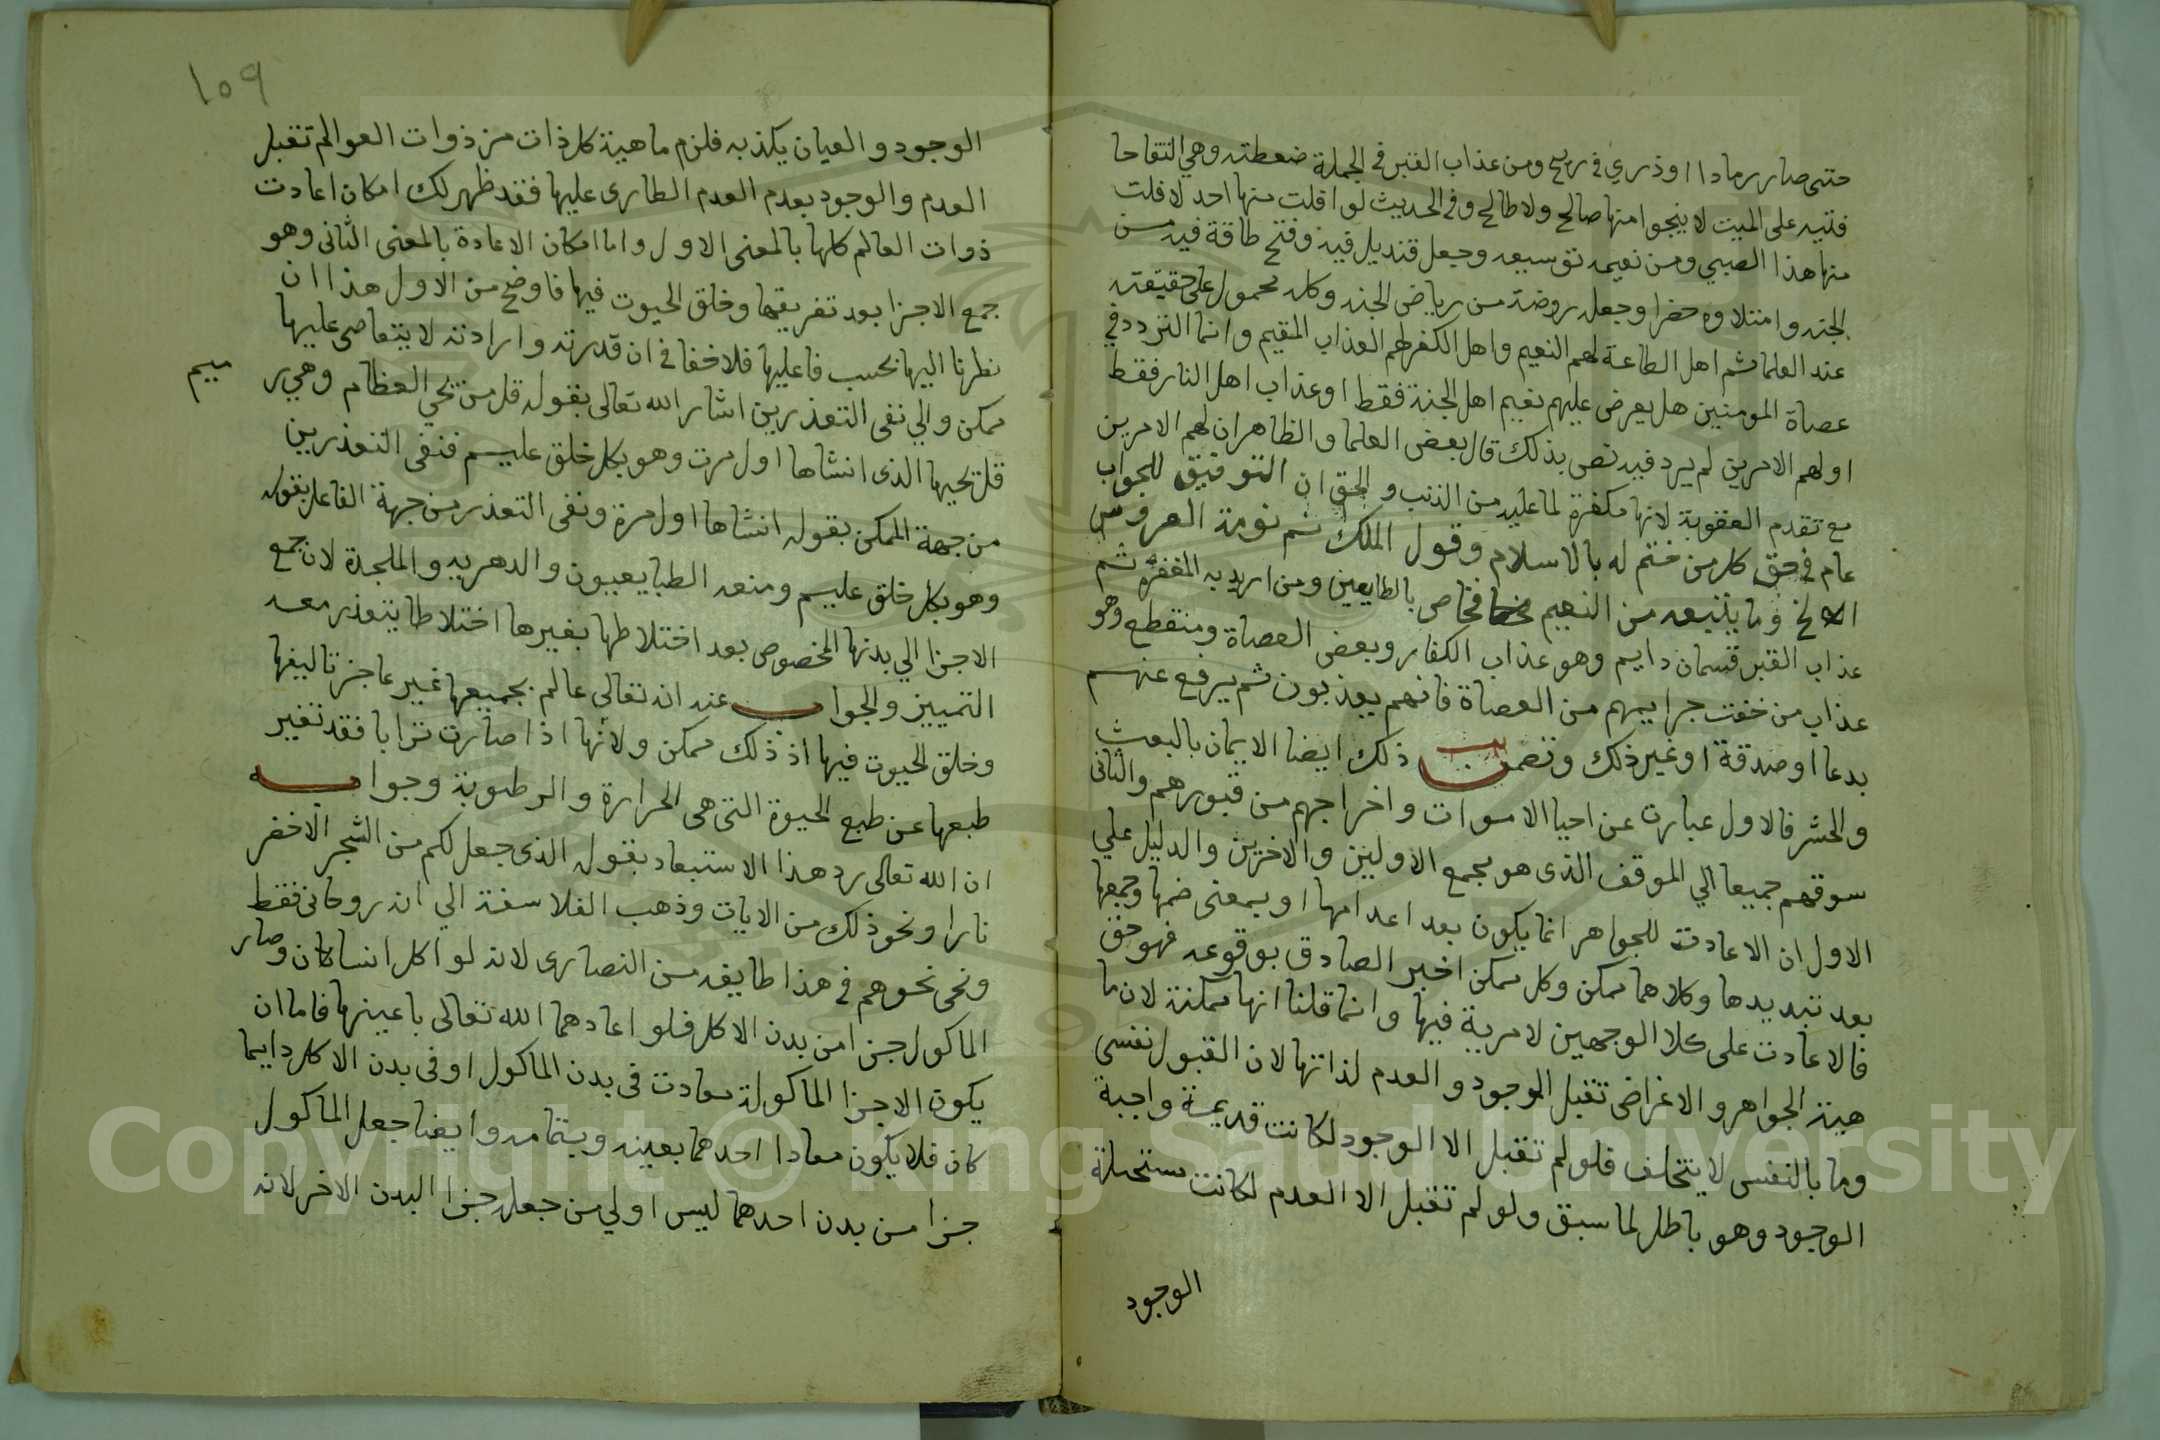 حتى صار رمادا او ذري في ريح ومن عذاب القبر في الجملة ضغطته وهي التقا حا
فتيه على الميت لا ينجوا منها صالح ولا طالح وفي الحديث لو افلت منها احد لافلت
منها هذا الصبي ومن نعيمه توسيعه وجعل قنديل فيه وفتح طاقة فيه من
الجنه وامتلاوه خضرا وجعله روضة من رياض الجنه وكله محمول على حقيقته
عند العلما ثم اهل الطاعة لهم النعيم واهل الكفر لهم العذاب المقيم وانما التردد في
عصاة المومنين هل يعرض عليهم نعيم اهل الجنة فقط او عذاب اهل النار فقط
او لهم الامرين لم يرد فيه نص بذلك قال بعض العلما والظاهر ان لهم الامرين
مع تقدم العقوبة لانها مكفرة لما عليه من الذنب و الحق ان التوفيق للجواب
عام في حق كل من ختم له بالاسلام وقول الملك نم نومة العروس
الخ وما يتبعه من النعيم فخاص بالطايعين ومن اريد به المغفرة ثم
عذاب القبر قسمان دايم وهو عذاب الكفار وبعض العصاة ومنقطع وهو
عذاب من خفت جرايمهم من العصاة فانهم يعذبون ثم يرفع عنهم
بدعا او صدقة او غير ذلك وتضمن ذلك ايضا الايمان بالبعث
والحشر فالاول عبارت عن احيا الاموات واخراجهم من قبورهم والثانى
سوقهم جميعا الي الموقف الذى هو مجمع الاولين والاخرين والدليل علي
الاول ان الاعادت للجواهر انما يكون بعد اعدامها او بمعنى ضمها وجمعها
بعد تبديدها وكلاهما ممكن وكل ممكن اخبر الصادق بوقوعه فهو حق
فالاعادت على كلا الوجهين لا مرية فيها وانما قلنا انها ممكنة لان ما
هية الجواهر والاعراض تقبل الوجود والعدم لذاتها لان القبول نفسى
وما بالنفس لا يتخلف فلو لم تقبل الا الوجود لكانت قديمة واجبة
الوجود وهو باطل لما سبق ولو لم تقبل الا العدم لكانت مستحيلة
الوجود
١٥٩
الوجود والعيان يكذبه فلزم ماهية كل ذات من ذوات العوالم تقبل
العدم والوجود بعدم العدم الطارى عليها فقد ظهر لك امكان اعادت
ذوات العالم كلها بالمعنى الاول واما امكان الاعادة بالمعنى الثانى وهو
جمع الاجزا بعد تفريقها وخلق الحيوت فيها فاوضح من الاول هذا ان
نظرنا اليها بحسب فاعليها فلا خفا في ان قدرته وارادته لا يتعاصى عليها
ممكن والي نفى التعذرين اشار الله تعالى بقوله قل من يحي العظام وهي ر
ميم
قل يحيها الذى انشاها اول مرت وهو بكل خلق عليم فنفى التعذرين
من جهة الممكن بقوله انشاها اول مرة ونفى التعذر من جهة الفاعل بقوله
وهو بكل خلق عليم ومنعه الطبايعيون والدهريه والملحدة لان جمع
الاجزا الي بدنها المخصوص بعد اختلاطها بغيرها اختلاطا يتعذر معه
التمييز والجواب عنه انه تعالى عالم بجميعها غير عاجز تاليفها
وخلق الحيوت فيها اذ ذلك ممكن ولانها اذا صارت ترابا فقد تغير
طبعها عن طبع الحيوة التى هى الحرارة والرطوبة وجوابه
ان الله تعالى رد هذا الاستبعاد بقوله الذى جعل لكم من الشجر الاخضر
نارا ونحو ذلك من الايات وذهب الفلاسفة الي انه روحانى فقط
ونحى نحوهم في هذا طايفه من النصارى لانه لو اكل انسانا كان وصار
الماكول جزا من بدن الاكل فلو اعادهما الله تعالى باعينها فاما ان
يكون الاجزا الماكولة معادت في بدن الماكول او في بدن الاكل دايما
كان فلا يكون معادا احدهما بعينه وبتمامه وايضا جعل الماكول
جزا من بدن احدهما ليس اولي من جعله جزا البدن الاخر لانه
Copyright © King Saud University